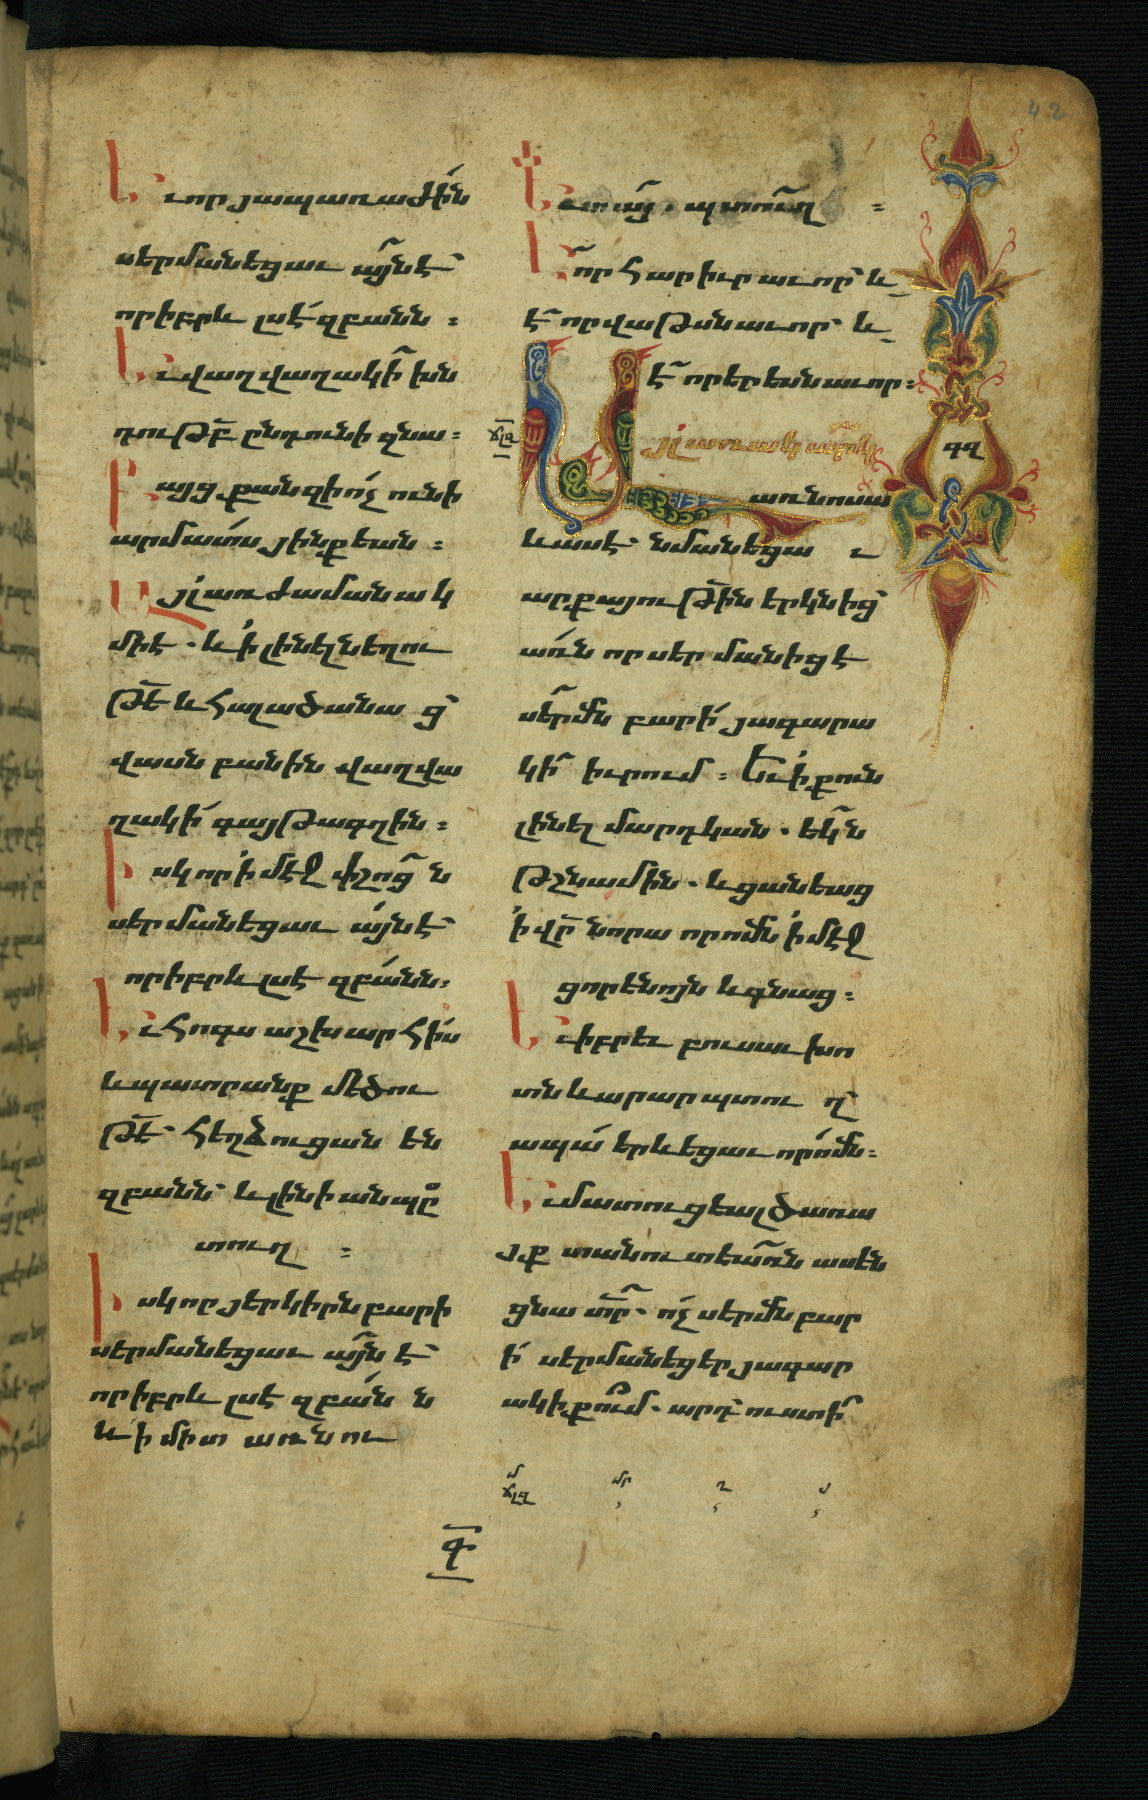 Եւ որ յապառաժին
սերմանեցաւ այն է
որ իբրև լսէ զբանն :
Եւ վաղվաղակի խն
դութբ ընդունի զնա :
Բայց քանզի ոչ ունի
արմատս յինքեան :
Այլ առ ժամանակ
մի է . և ի լինել նեղու
թե և հալածանաց
վասն բանին վաղվա
ղակի գայթագղին :
Իսկ որ ի մէջ փշոց ն
սերմանեցաւ այն է
որ իբրև լսէ զբանն :
Եւ հոգս աշխարհիս
և պատրանք մեծու
թե հեղձուցանեն
զբանն և լինի անպը
տուղ :
Իսկ որ յերկիրն բարի
սերմանեցաւ այն է
որ իբրև լսէ զբան ն
և ի միտ առնու
Եւ տայ . պտուղ :
Է որ հարիւրաւոր և
է որ վաթսնաւոր և
է որ երեսնաւոր :
Այլ առակ
առնոսա
և ասէ նմանեցաւ
արքայութին երկնից
առն որ սերմանիցէ
սերմն բարի յագարա
կի իւրում : Եւ ի քուն
լինել մարդկան . եկն
թշնամին . և ցանեաց
ի վր նորա որոմն ի մէջ
ցորենոյն և գնաց :
Եւ իբրեւ բուսաւ խո
տն և արար պտուղ
ապա երևեցաւ որոմն :
Եւ մատուցեալ ծառա
յք տանուտեառն ասեն
ցնա տր . ոչ սերմն բար
ի սերմանեցեր յագար
ակի քում . արդ ուստի
ճլզ
42